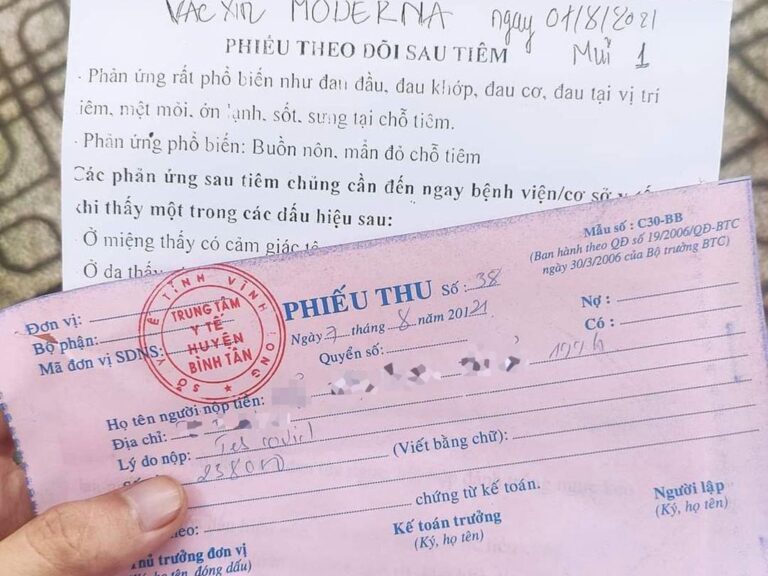 VẮC XIN MODERNA ngày 07/8/2021
PHIẾU THEO DÕI SAU TIÊM Mũi 1
- Phản ứng rất phổ biến như đau đầu, đau khớp, đau cơ, đau tại vị trí
tiêm, mệt mỏi, ớn lạnh, sốt, sưng tại chỗ tiêm.
- Phản ứng phổ biến: Buồn nôn, mẩn đỏ chỗ tiêm
Các phản ứng sau tiêm chủng cần đến ngay bệnh viện/cơ sở y tế
khi thấy một trong các dấu hiệu sau:
Ở miệng thấy có cảm giác tê
Ở da thấy
Mẫu số : C30-BB
(Ban hành theo QĐ số 19/2006/QĐ-BTC
ngày 30/3/2006 của Bộ trưởng BTC)
Đơn vị:
Bộ phận:
Mã đơn vị SDNS:
SỞ Y TẾ TỈNH VĨNH LONG
TRUNG TÂM
Y TẾ
HUYỆN
BÌNH TÂN
PHIẾU THU Số : 38
Ngày 7 tháng 8 năm 20121
Quyển số:
Nợ :
Có :
Họ tên người nộp tiền:
Địa chỉ:
Lý do nộp: Tes covid
(Viết bằng chữ):
238000
chứng từ kế toán.
Thủ trưởng đơn vị
(Ký, họ tên, đóng dấu)
Kế toán trưởng
(Ký, họ tên)
Người lập
(Ký, họ tên)